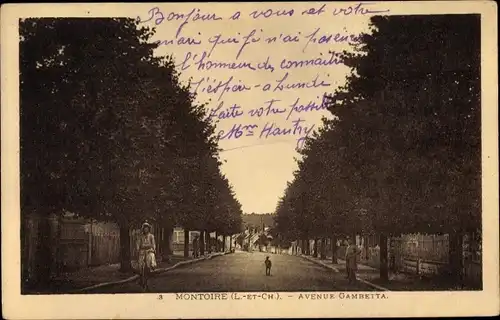 Bonjour a vous et votre
mari qui je n'ai pas eu
l'honneur de connaitre
J'espère - a Lundi
Faite votre possible
Mme Hantry
3 MONTOIRE (L.-ET-CH.). - AVENUE GAMBETTA.